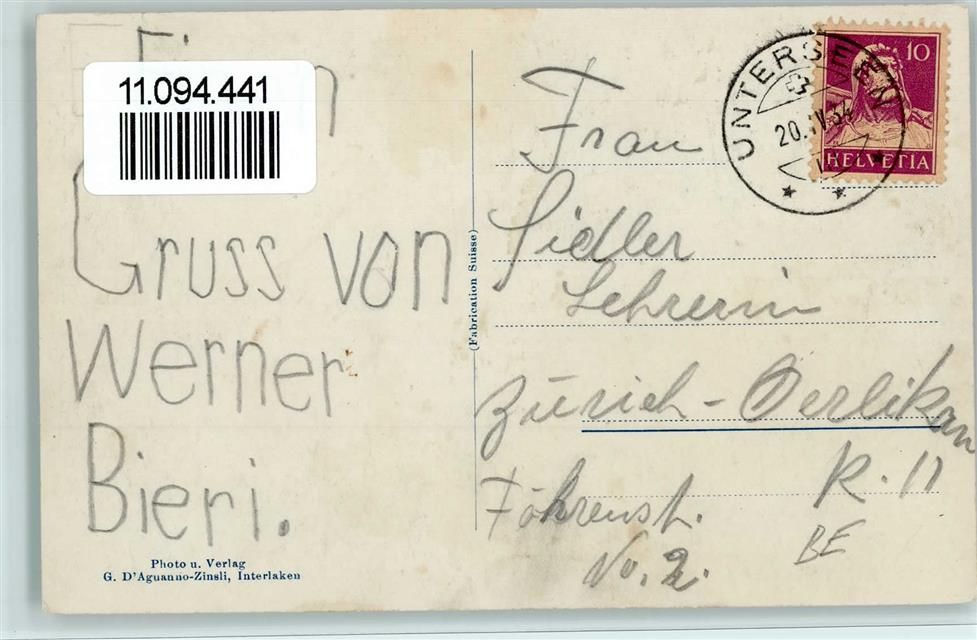 11.094.441
Gruss von
Werner
Bieri.
Photo u. Verlag
G. D'Aguanno-Zinsli, Interlaken
(Fabrication Suisse)
UNTERSEEN
20.IV.34
10
HELVETIA
Frau
Sidler
Lehrerin
Zürich-Oerlikon
K. 11
Föhrenst.
No. 2.
BE